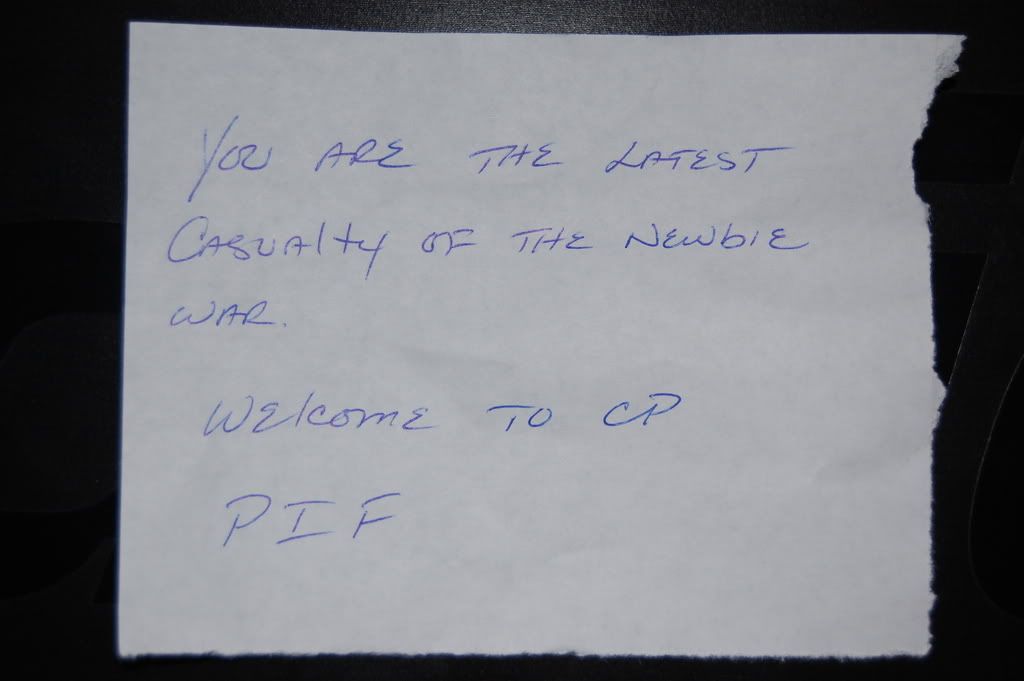 You ARE THE LATEST
CASUAlty OF THE NEWbIE
WAR.
WElcomE TO CP
PIF